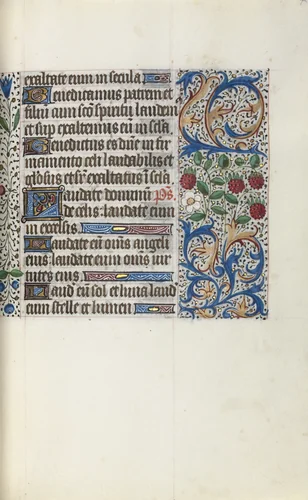 exaltate eum in secula
Benedicamus patrem et
filiu cum sco spiritu lauden
et sup exaltemus eu in scła
Benedictus es dne in fir
mamento celi laudabilis et
głosus et sup exaltatus i scła
Laudate dominu ps.
de celis laudate eum
in excelsis
Laudate eu oms angeli
eius laudate eum oms uir
tutes eius
Laud eu sol et luna laud
eum stelle et lumen